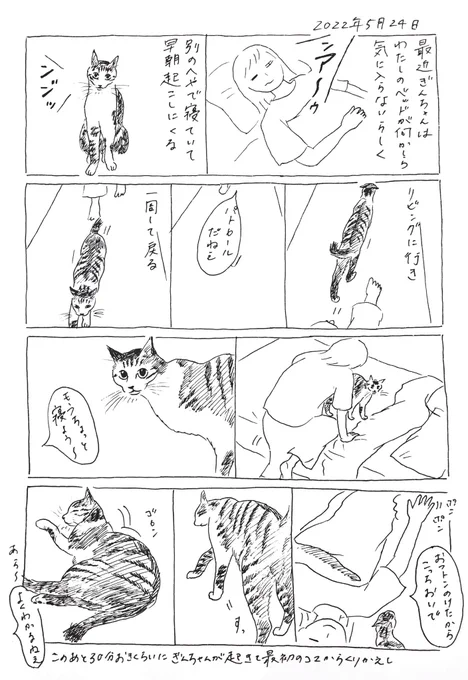 2022年5月24日
最近ぎんちゃんは
わたしのベッドが何かしら
気に入らないらしく
ンアーゥ
別のへやで寝ていて
早朝起こしにくる
ンジッ
リビングに行き
パトロール
だねェ
一周して戻る
もうちょっと
寝よう〜
ポンポン
おフトンのけたから
こっちおいで
すっ
ゴロン
あら〜
よくわかるねェ
このあと30分おきくらいに ぎんちゃんが起きて最初のコマからくりかえし